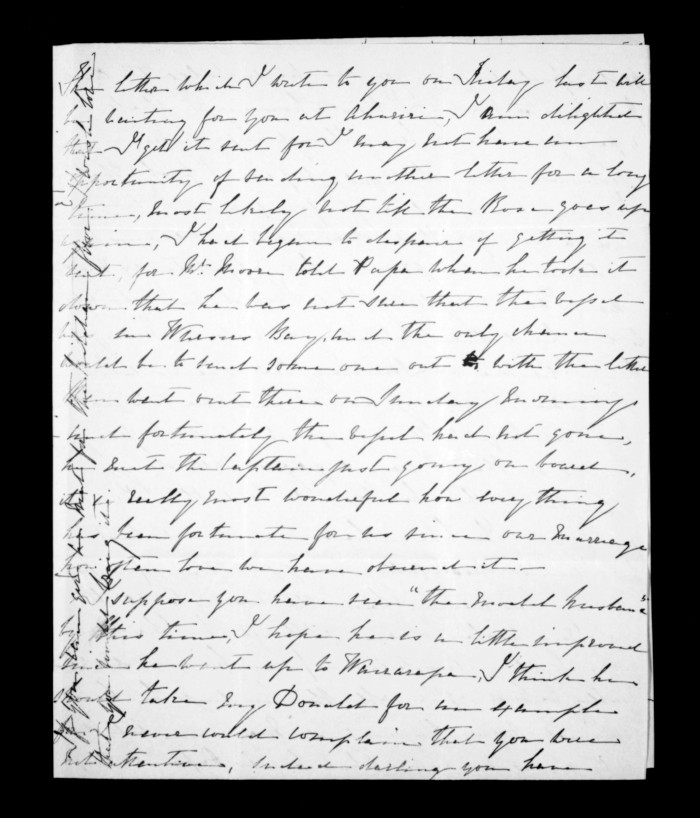 The letter which I wrote to you on Friday last will
be waiting for you at Ahuriri, I am delighted
that I get it sent for I may not have an
opportunity of sending another letter for a long
time, most likely not till the Rose goes up
again, I had began to despair of getting it
sent, for Mr Moore told Papa when he took it
down that he was not sure that the vessel
was in Waiwis Bay, and the only chance
would be to send some one out with the letter
went out there on Sunday Morning
and fortunately the vessel had not gone,
he met the Captain just going on board,
it is really most wonderful how everything
has been fortunate for us since our Marriage
how often love we have observed it —
I suppose you have seen "the model Husband"
by this time, I hope he is a little improved
since he went up to Wairarapa, I think he
should take my Donald for an example
I never could complain that you were
not attentive, indeed darling you have